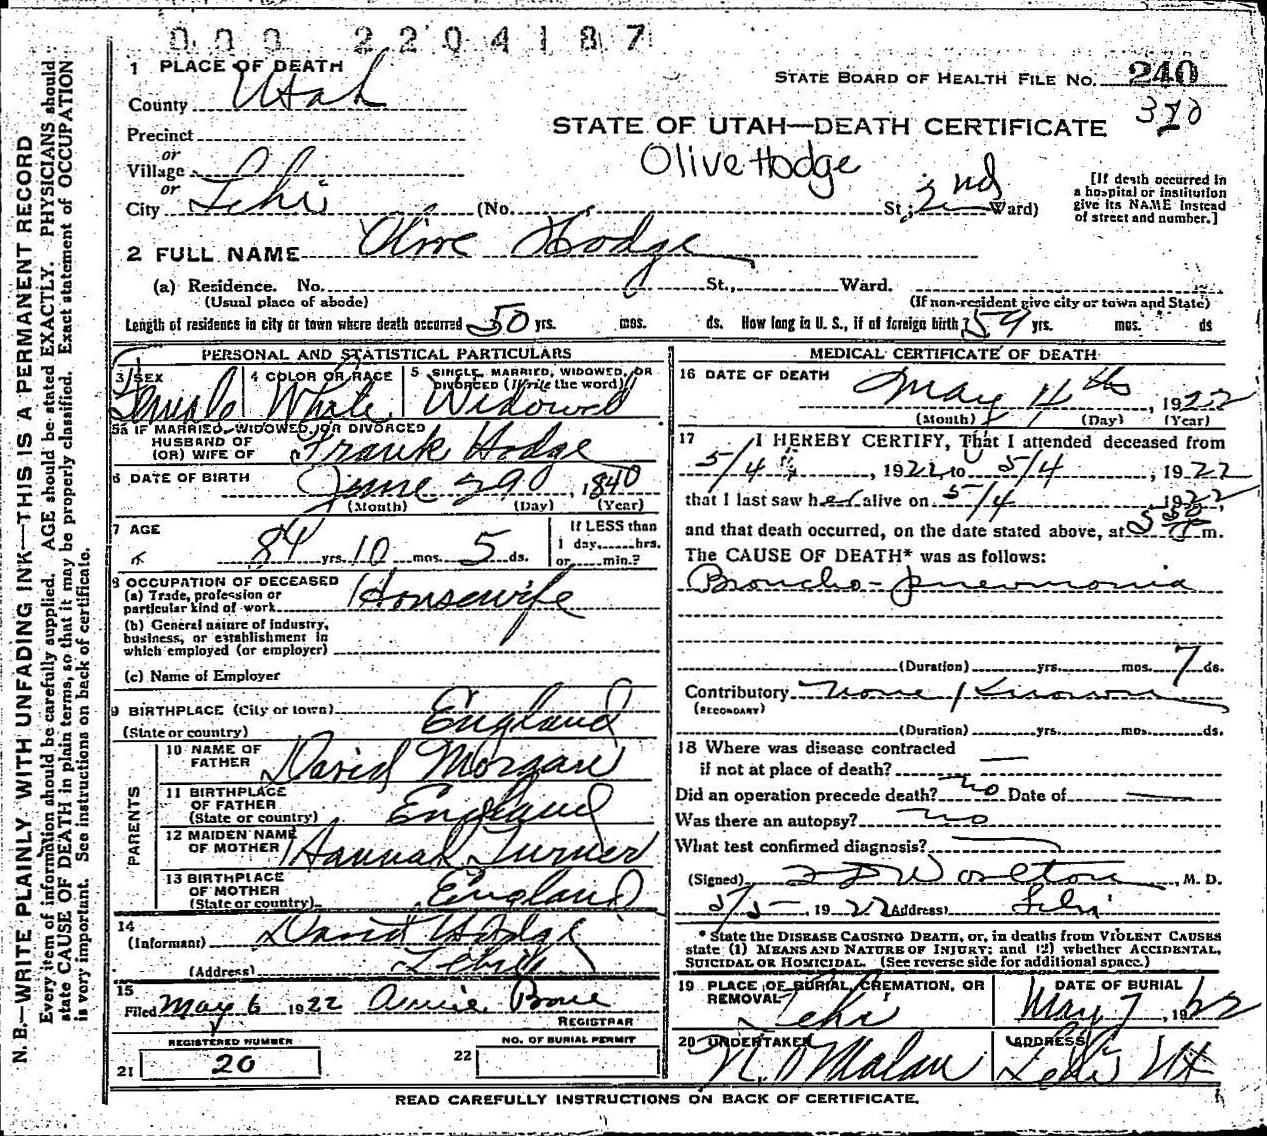 000 2204187
1 PLACE OF DEATH
STATE BOARD OF HEALTH FILE NO. 240
County Utah
370
Precinct
STATE OF UTAH—DEATH CERTIFICATE
or
Olive Hodge
Village
or
City Lehi (No. St.; 2nd Ward)
[If death occurred in
a hospital or institution
give its NAME instead
of street and number.]
2 FULL NAME Olive Hodge
(a) Residence. No. St., Ward.
(Usual place of abode) (If non-resident give city or town and State)
Length of residence in city or town where death occurred 50 yrs. mos. ds. How long in U. S., if of foreign birth? 59 yrs. mos. ds
PERSONAL AND STATISTICAL PARTICULARS
3 SEX 4 COLOR OR RACE 5 SINGLE, MARRIED, WIDOWED, OR
DIVORCED (Write the word)
Female White Widowed
5a IF MARRIED, WIDOWED, OR DIVORCED
HUSBAND OF
(OR) WIFE OF Frank Hodge
6 DATE OF BIRTH June 29, 1840
(Month) (Day) (Year)
7 AGE 84 yrs. 10 mos. 5 ds.
If LESS than
1 day, hrs.
or min.?
8 OCCUPATION OF DECEASED
(a) Trade, profession or
particular kind of work Housewife
(b) General nature of industry,
business, or establishment in
which employed (or employer)
(c) Name of Employer
9 BIRTHPLACE (City or town)
(State or country) England
PARENTS
10 NAME OF
FATHER David Morgan
11 BIRTHPLACE
OF FATHER
(State or country) England
12 MAIDEN NAME
OF MOTHER Hannah Turner
13 BIRTHPLACE
OF MOTHER
(State or country) England
14
(Informant) David Hodge
(Address) Lehi
15
Filed May 6 1922 Annie
REGISTRAR
REGISTERED NUMBER
21 20
NO. OF BURIAL PERMIT
22
MEDICAL CERTIFICATE OF DEATH
16 DATE OF DEATH
May 4th, 1922
(Month) (Day) (Year)
17 I HEREBY CERTIFY, That I attended deceased from
5/4, 1922 to 5/4, 1922
that I last saw her alive on 5/4 1922,
and that death occurred, on the date stated above, at m.
The CAUSE OF DEATH* was as follows:
Broncho-pneumonia
(Duration) yrs. mos. 7 ds.
Contributory None Known
(SECONDARY)
(Duration) yrs. mos. ds.
18 Where was disease contracted
if not at place of death? —
Did an operation precede death? no Date of —
Was there an autopsy? no
What test confirmed diagnosis? —
(Signed) Worlton, M. D.
5/5, 1922 (Address) Lehi
* State the DISEASE CAUSING DEATH, or, in deaths from VIOLENT CAUSES
state (1) MEANS AND NATURE OF INJURY; and (2) whether ACCIDENTAL,
SUICIDAL OR HOMICIDAL. (See reverse side for additional space.)
19 PLACE OF BURIAL, CREMATION, OR
REMOVAL Lehi
DATE OF BURIAL
May 7, 1922
20 UNDERTAKER
N. O Malan
ADDRESS
Lehi Ut
READ CAREFULLY INSTRUCTIONS ON BACK OF CERTIFICATE.
N. B.—WRITE PLAINLY WITH UNFADING INK—THIS IS A PERMANENT RECORD
Every item of information should be carefully supplied. AGE should be stated EXACTLY. PHYSICIANS should
state CAUSE OF DEATH in plain terms, so that it may be properly classified. Exact statement of OCCUPATION
is very important. See instructions on back of certificate.